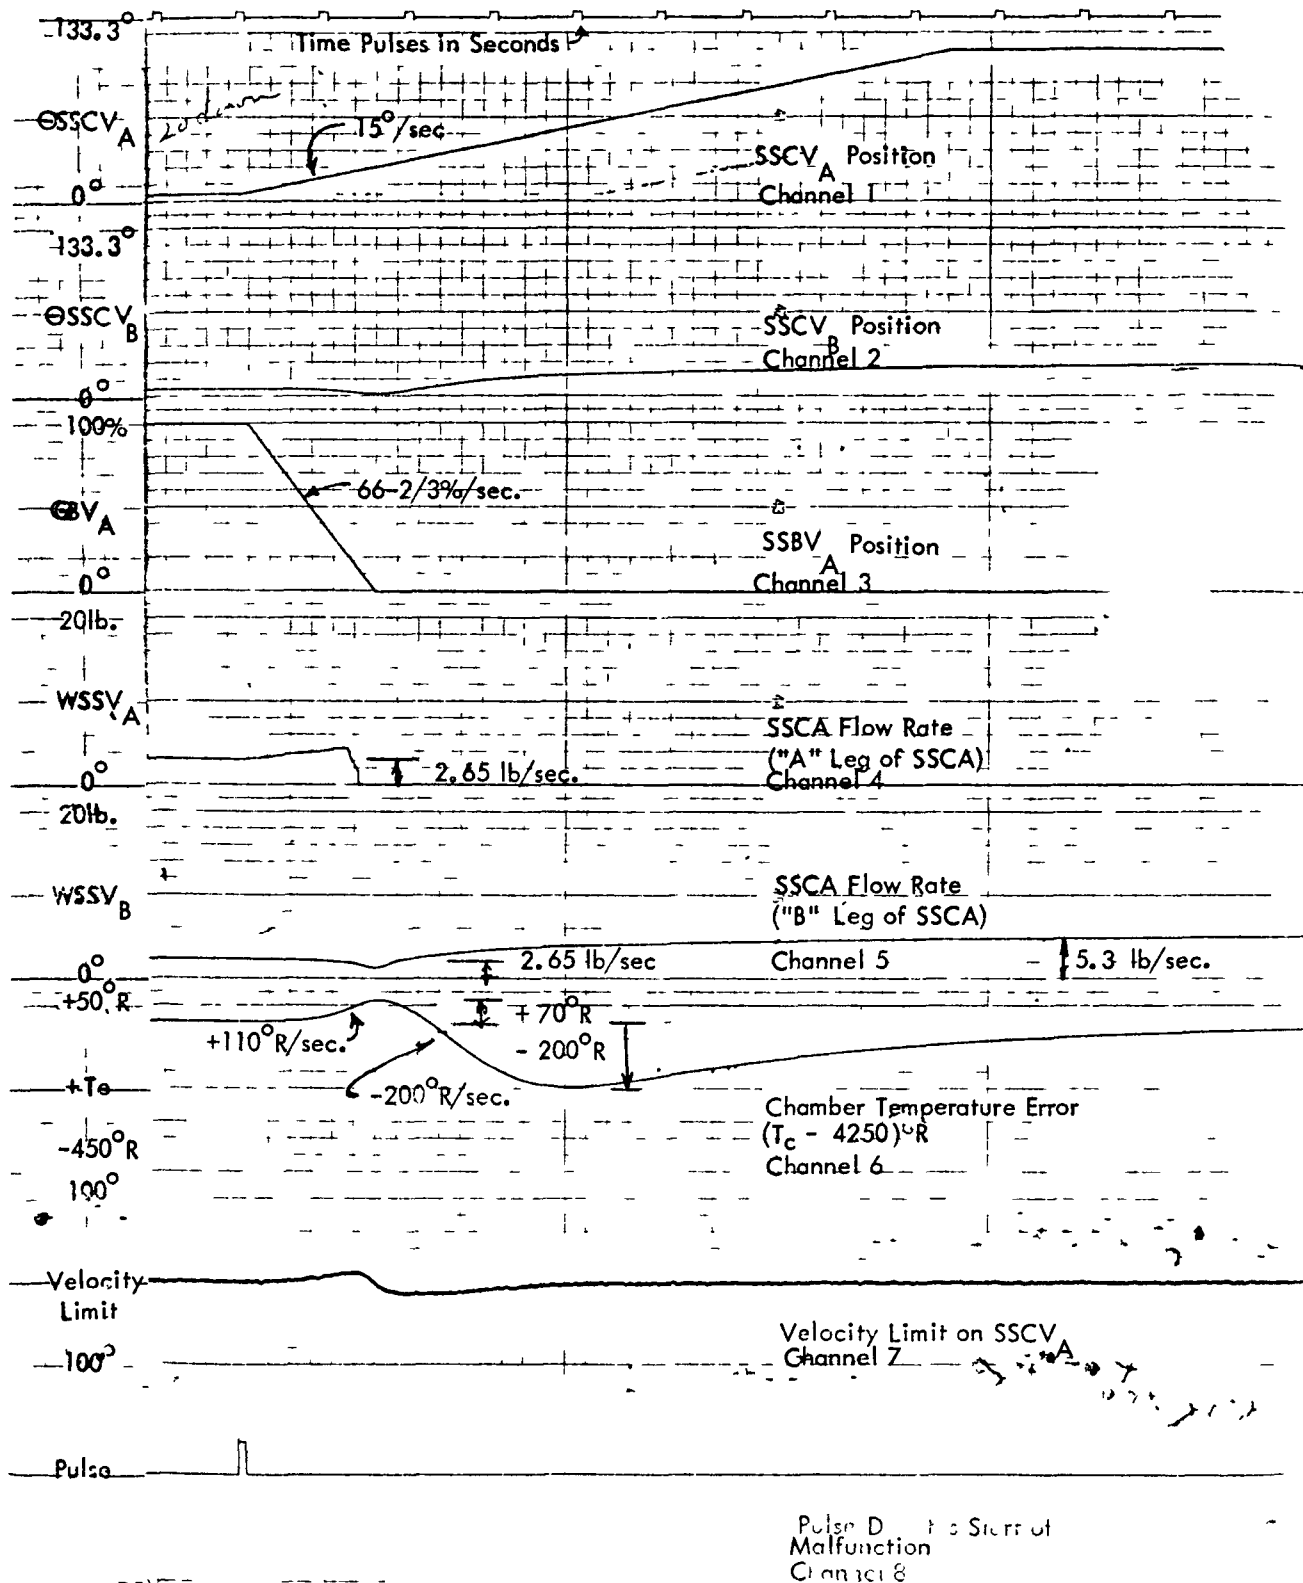 133.3°
Time Pulses in Seconds
ΘSSCV_A
15°/sec
SSCV_A Position
Channel 1
0°
133.3°
ΘSSCV_B
SSCV_B Position
Channel 2
0°
100%
66-2/3%/sec.
ΘBV_A
SSBV_A Position
Channel 3
0°
20lb.
WSSV_A
SSCA Flow Rate
("A" Leg of SSCA)
Channel 4
2.65 lb/sec.
0°
20lb.
WSSV_B
SSCA Flow Rate
("B" Leg of SSCA)
2.65 lb/sec
Channel 5
5.3 lb/sec.
0°
+50°R
+70°R
+110°R/sec.
- 200°R
+Te
-200°R/sec.
Chamber Temperature Error
(Tc - 4250)°R
Channel 6
-450°R
100°
Velocity
Limit
Velocity Limit on SSCV_A
Channel 7
-100°
Pulse
Pulse
Malfunction
Channel 8